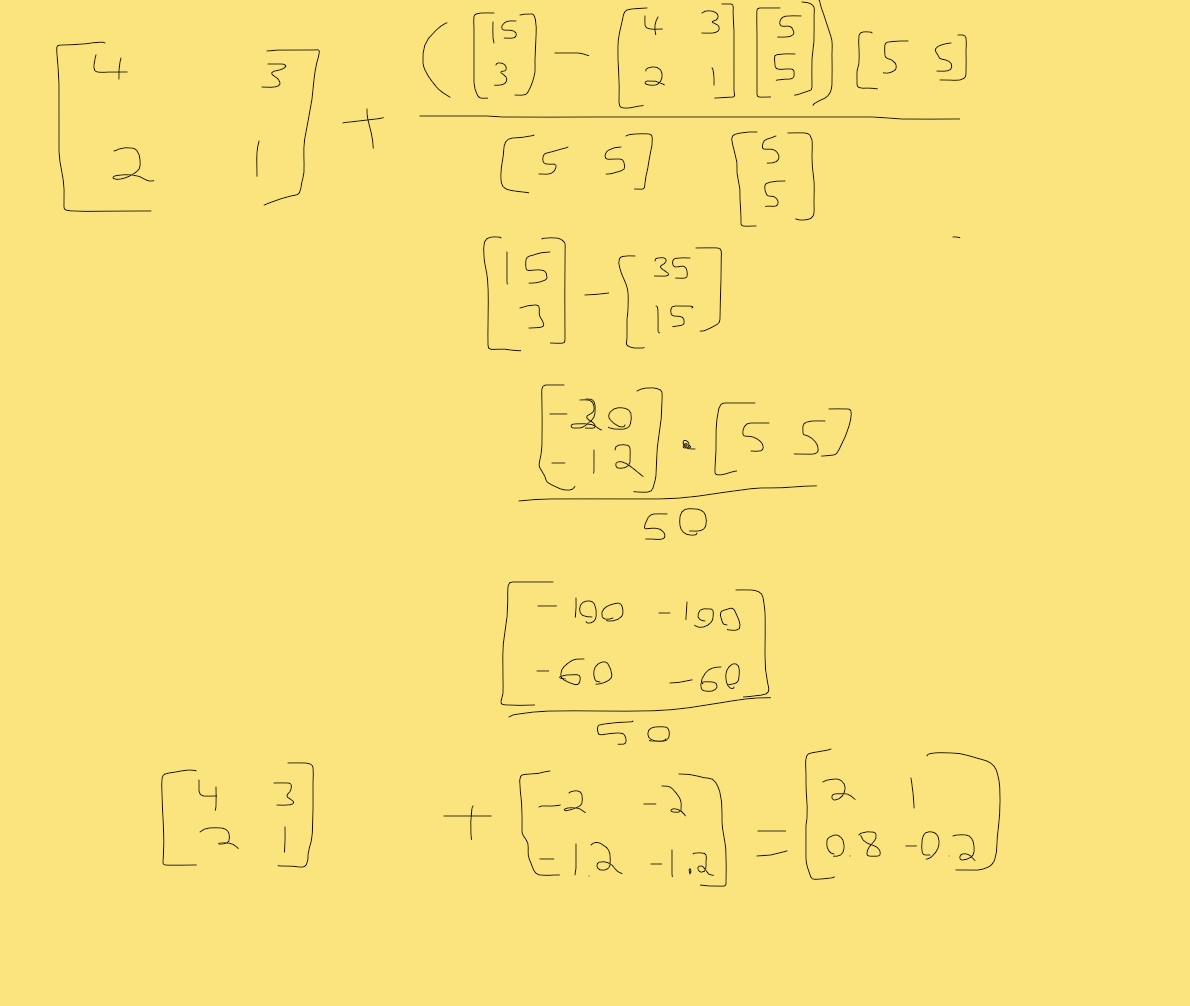 [4 3; 2 1] + (([15; 3] - [4 3; 2 1] [5; 5]) [5 5]) / ([5 5] [5; 5])
[15; 3] - [35; 15]
([-20; -12] · [5 5]) / 50
[-100 -100; -60 -60] / 50
[4 3; 2 1] + [-2 -2; -1.2 -1.2] = [2 1; 0.8 -0.2]